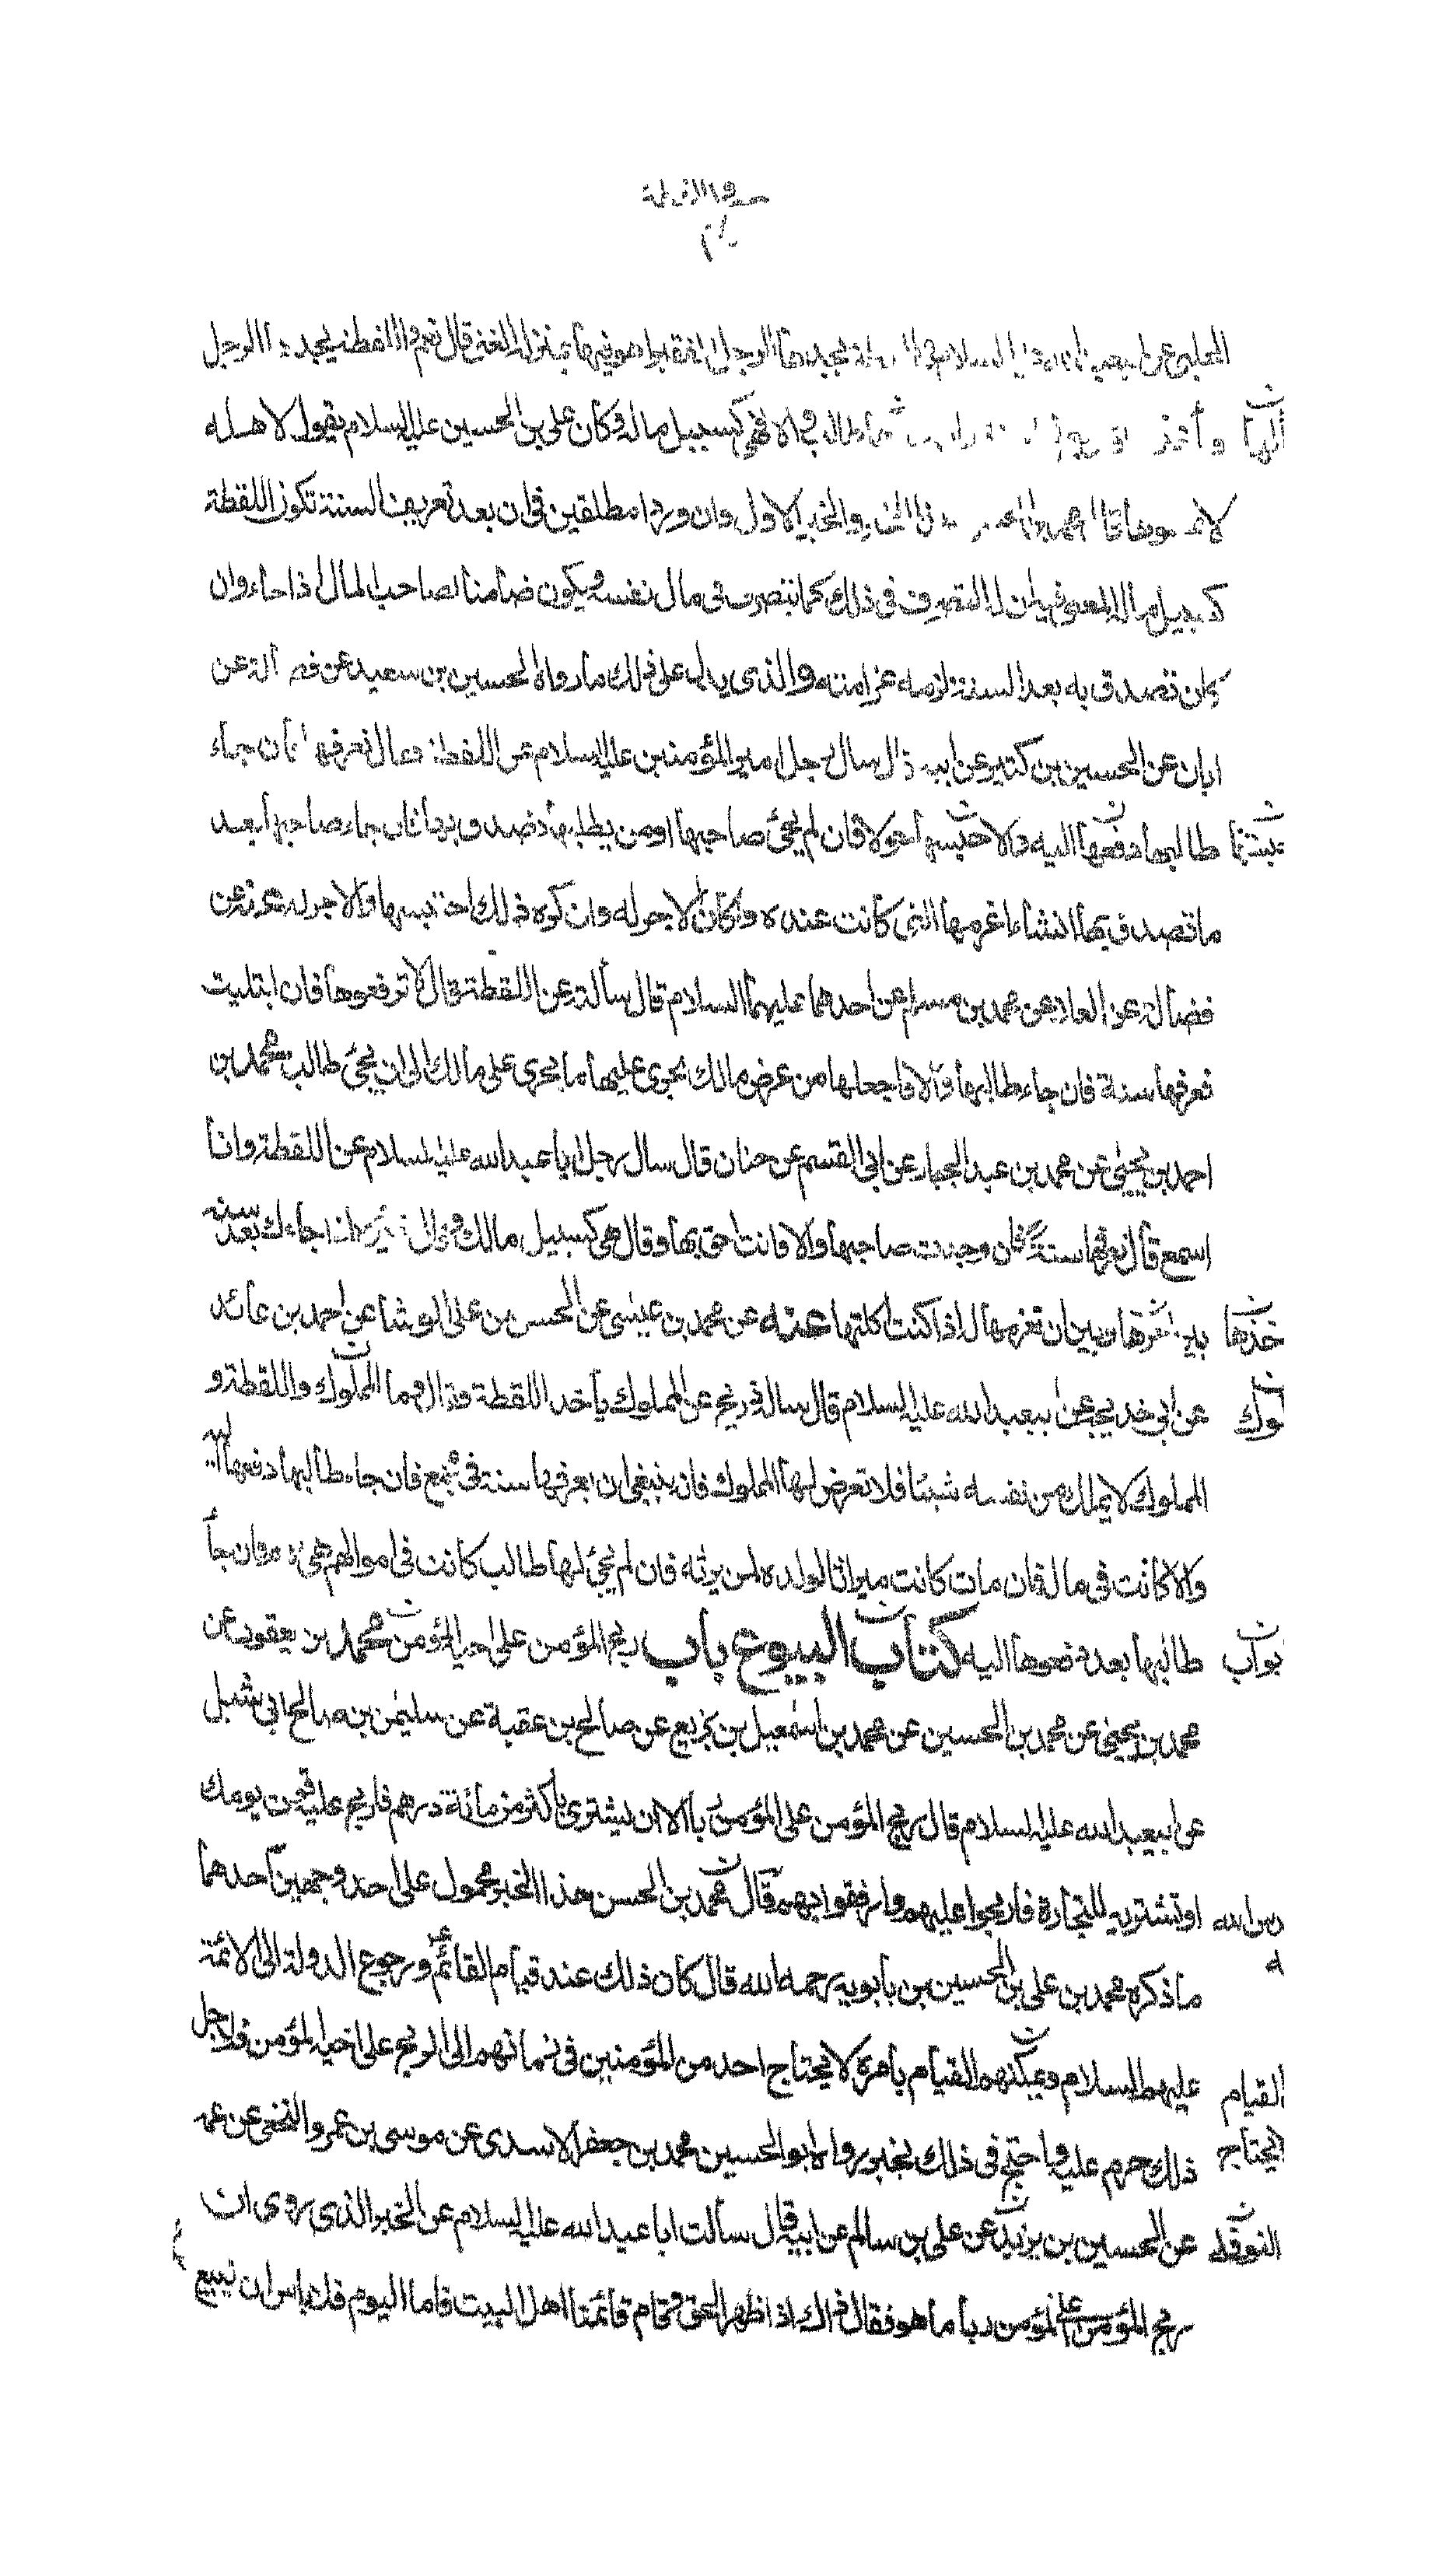 الحلبي عن ابيعبد الله عليه السلام في اللقطة يجدها الرجل الفقير اهو فيها بمنزلة الغني قال نعم واللقطة يجدها الرجل
وكان علي بن الحسين عليه السلام يقول لاهله
لا تمسوها قال محمد بن الحسن هذا الخبر والخبر الاول وان وردا مطلقين في ان بعد تعريف السنة تكون اللقطة
كسبيل ماله المعنى فيه ان له التصرف في ذلك كما يتصرف في مال نفسه ويكون ضامنا لصاحب المال اذا جاء وان
كان تصدق به بعد السنة لزمه غرامته والذي يدل على ذلك ما رواه الحسين بن سعيد عن فضالة عن
ابان عن الحسين بن كثير عن ابيه قال سال رجل امير المؤمنين عليه السلام عن اللقطة فقال تعرفها فان جاء
طالبها دفعها اليه والا حبسها حولا فان لم يجئ صاحبها اومن يطلبها تصدق بها فان جاء صاحبها بعد
ما تصدق بها ان شاء اغرمها الذي كانت عنده وكان الاجر له وان كره ذلك احتبسها والاجر له عنه عن
فضالة عن العلا عن محمد بن مسلم عن احدهما عليهما السلام قال سألته عن اللقطة قال لا ترفعوها فان ابتليت
فعرفها سنة فان جاء طالبها والا فاجعلها من عرض مالك يجري عليها ما يجري على مالك الى ان يجئ طالب محمد بن
احمد بن يحيى عن محمد بن عبد الجبار عن ابي القسم عن حنان قال سال رجل ابا عبد الله عليه السلام عن اللقطة وانا
اسمع قال تعرفها سنة فان وجدت صاحبها والا فانت احق بها وقال هي كسبيل مالك وقال خيره اذا جاءك بعد سنة
بين اجرها وبين ان تغرمها له اذا كنت اكلتها عنه عن محمد بن عيسى عن الحسن بن علي الوشا عن احمد بن عائد
عن ابي خديجة عن ابيعبد الله عليه السلام قال ساله ذريح عن المملوك يأخذ اللقطة قال وما المملوك واللقطة و
المملوك لا يملك من نفسه شيئا فلا تعرض لها المملوك فانه ينبغي ان يعرفها سنة في مجمع فان جاء طالبها دفعها اليه
والا كانت في ماله فان مات كانت ميراثا لولده ولمن يرثه فان لم يجئ لها طالب كانت في اموالهم هي لهم فان جأ
طالبها بعد دفعوها اليه كتاب البيوع باب ربح المؤمن على اخيه المؤمن محمد بن يعقوب عن
محمد بن يحيى عن محمد بن الحسين عن محمد بن اسمعيل بن بزيع عن صالح بن عقبة عن سليمن بن صالح ابي شبل
عن ابيعبد الله عليه السلام قال ربح المؤمن على المؤمن ربا الا ان يشتري باكثر من مائة درهم فاربح عليه قوت يومك
او تشتريه للتجارة فاربحوا عليهم وارفقوا بهم قال محمد بن الحسن هذا الخبر محمول على احد وجهين احدهما
ما ذكره محمد بن علي بن الحسين بن بابويه رحمه الله قال كان ذلك عند قيام القائم ورجوع الدولة الى الائمة
عليهم السلام ويمكنهم القيام بامره لا يحتاج احد من المؤمنين في زمانهم الى الربح على اخيه المؤمن فلاجل
ذلك حرم عليه واحتج في ذلك بخبر رواه ابو الحسين محمد بن جعفر الاسدي عن موسى بن عمرو النخعي عن عمه
عن الحسين بن يزيد عن علي بن سالم عن ابيه قال سألت ابا عبد الله عليه السلام عن الخبر الذي روى ان
ربح المؤمن على المؤمن ربا ما هو فقال ذاك اذا ظهر الحق وقام قائمنا اهل البيت فاما اليوم فلا باس ان تبيع
خذها
القيام
يحتاج
النوفلي